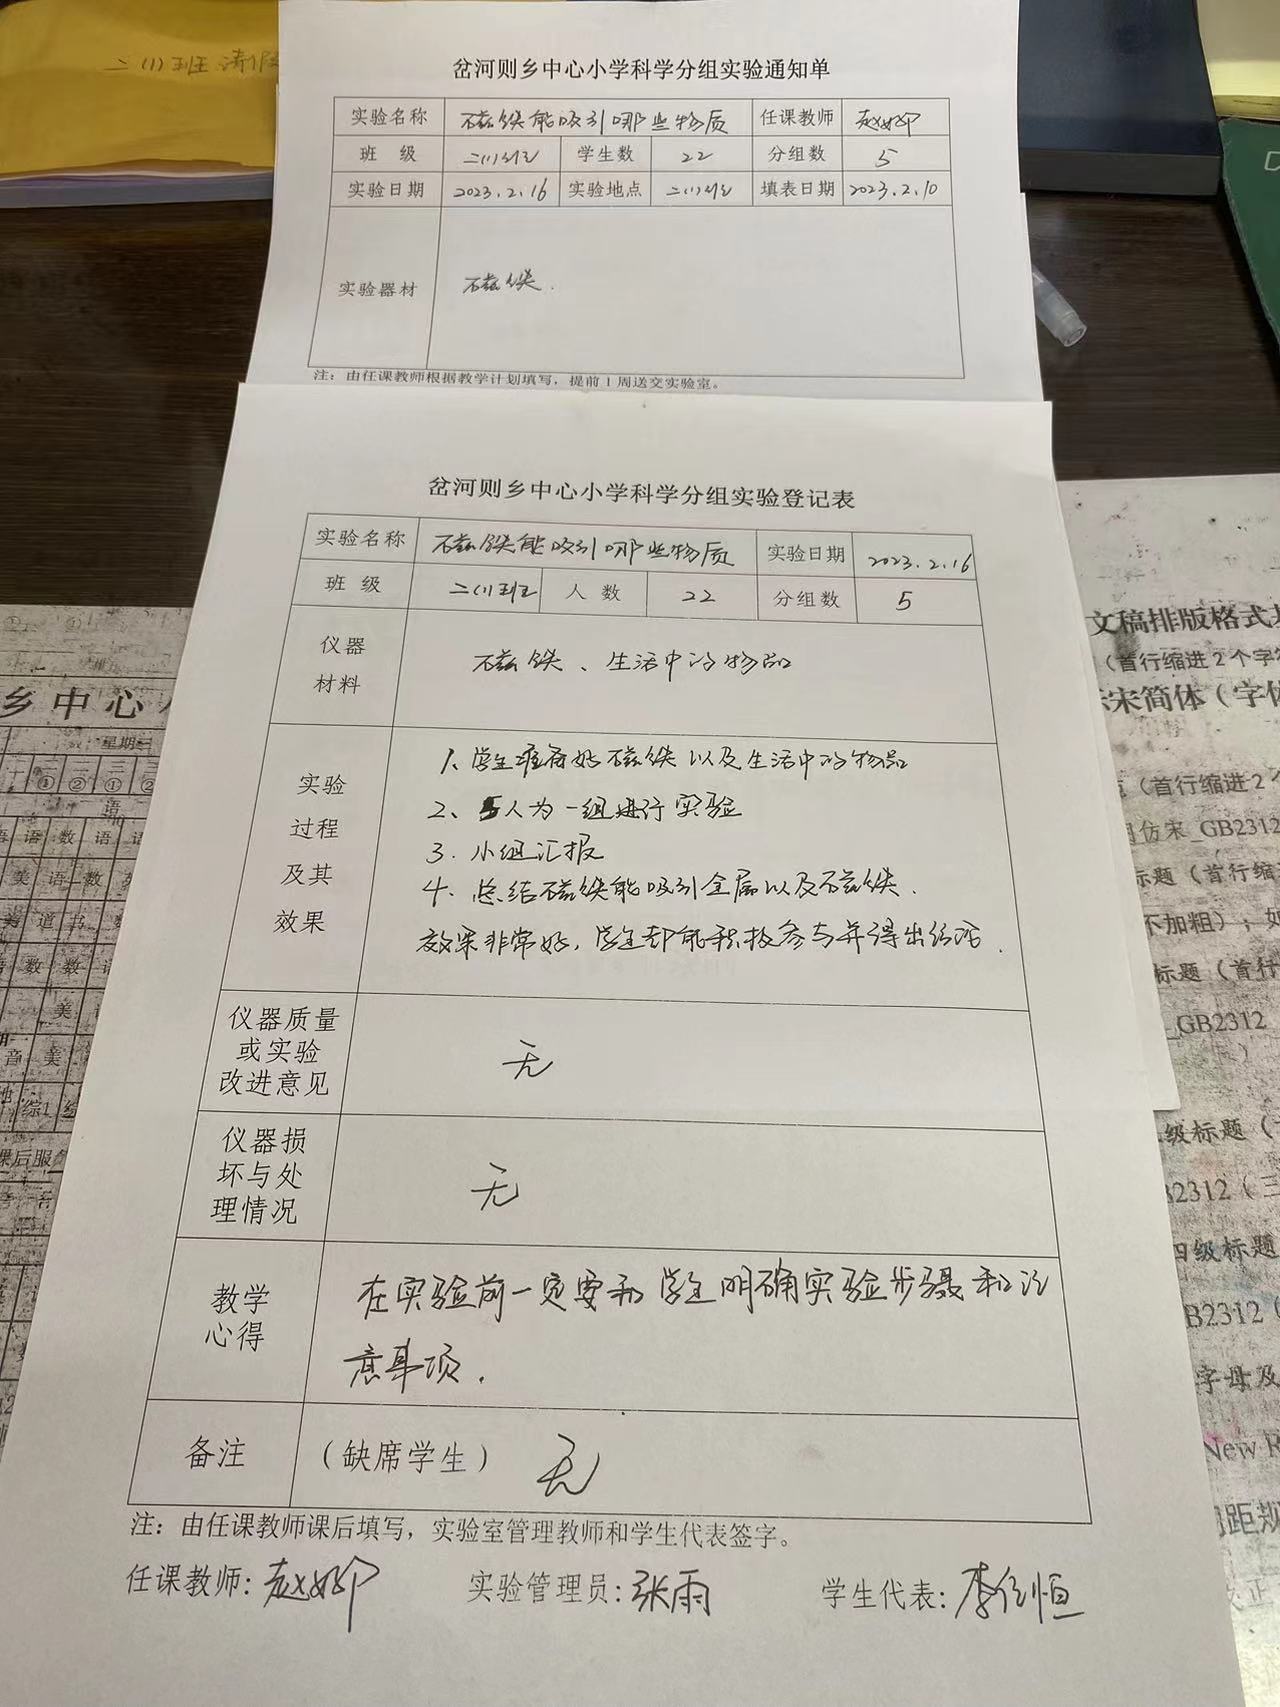 二(1)班 请假
岔河则乡中心小学科学分组实验通知单
实验名称 磁铁能吸引哪些物质 任课教师
班 级 二(1)班 学生数 22 分组数 5
实验日期 2023.2.16 实验地点 二(1)班 填表日期 2023.2.10
实验器材 磁铁.
注：由任课教师根据教学计划填写，提前1周送交实验室。
岔河则乡中心小学科学分组实验登记表
实验名称 磁铁能吸引哪些物质 实验日期 2023.2.16
班 级 二(1)班 人 数 22 分组数 5
仪器
材料
磁铁、生活中的物品
实验
过程
及其
效果
1、学生准备好磁铁以及生活中的物品
2、5人为一组进行实验
3.小组汇报
4、总结磁铁能吸引金属以及磁铁.
效果非常好，学生都能积极参与并得出结论.
仪器质量
或实验
改进意见
无
仪器损
坏与处
理情况
无
教学
心得
在实验前一定要和学生明确实验步骤和注
意事项.
备注 （缺席学生） 无
注：由任课教师课后填写，实验室管理教师和学生代表签字。
任课教师: 实验管理员:张雨 学生代表:
乡中心
星期三
文稿排版格式
（首行缩进2个字
宋简体（字体
（首行缩进2个
仿宋_GB2312
标题（首行缩
不加粗），如
标题（首行
_GB2312
级标题（
B2312（三
四级标题
B2312
字母及
New R
间距规